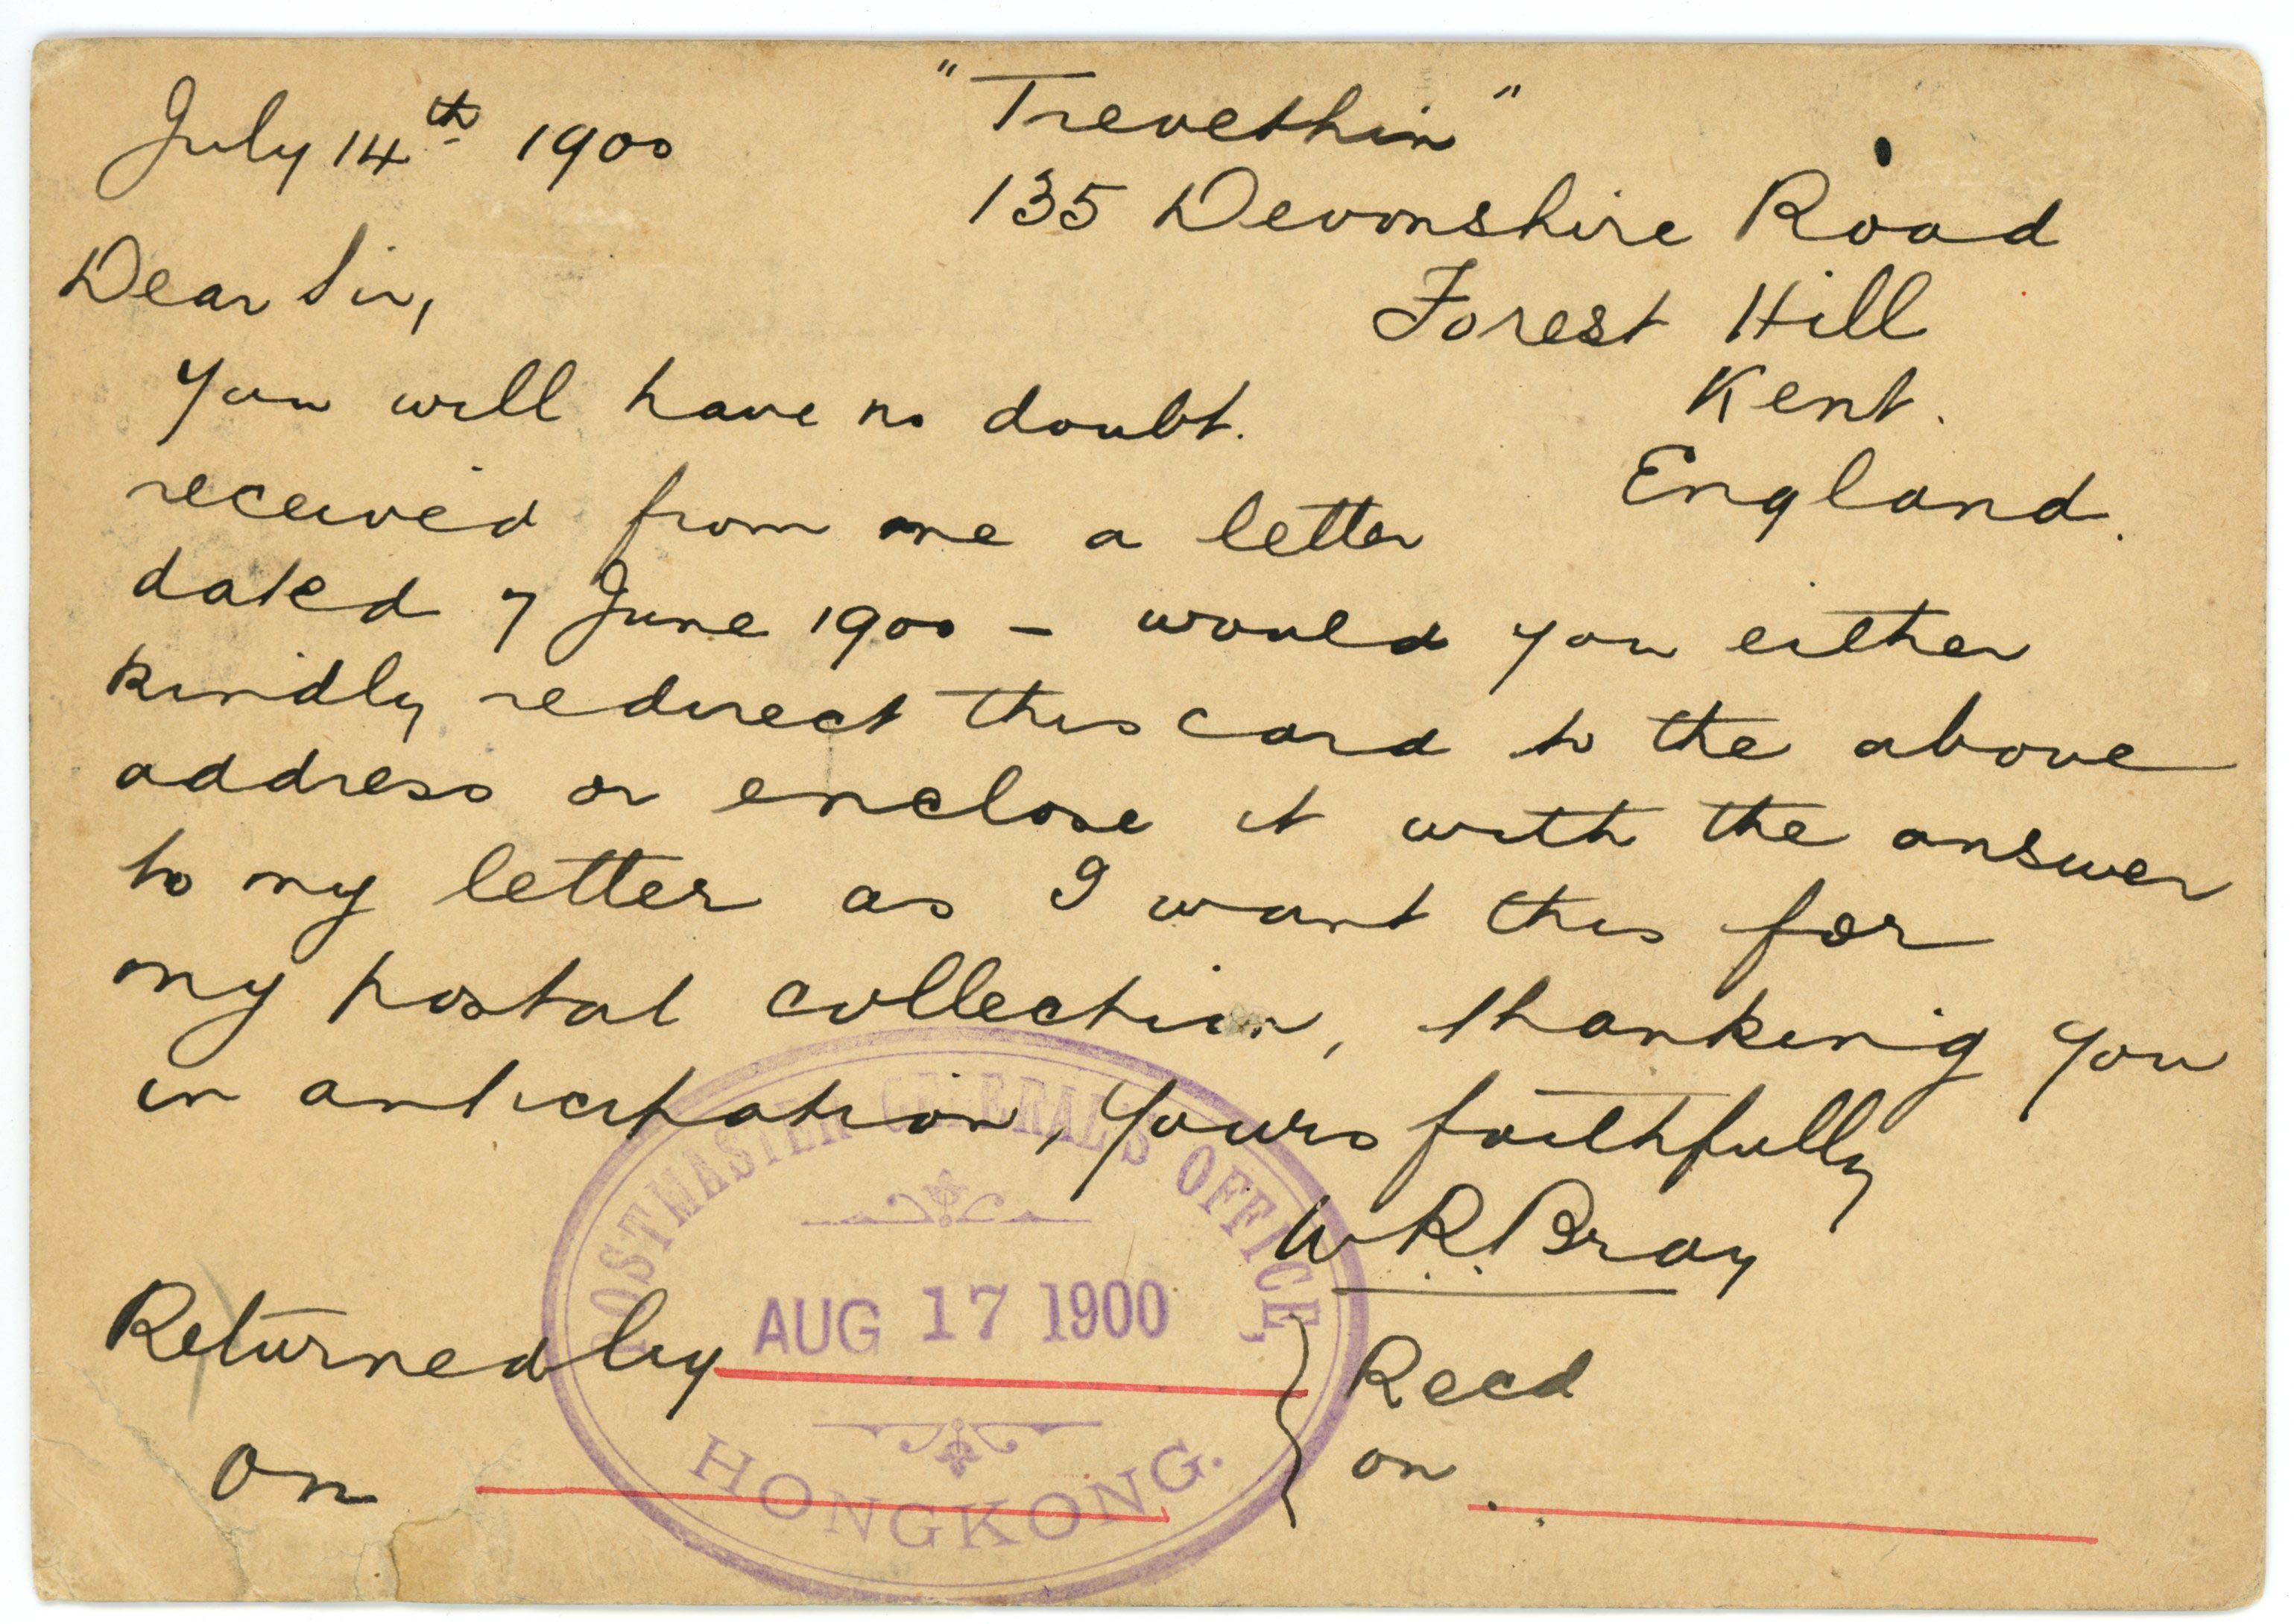 July 14th 1900
"Trevethin"
135 Devonshire Road
Forest Hill
Kent.
England.
Dear Sir,
You will have no doubt.
received from me a letter
dated 7 June 1900 – would you either
kindly redirect this card to the above
address or enclose it with the answer
to my letter as I want this for
my postal collection, thanking you
in anticipation, Yours faithfully
W.R. Bray
POSTMASTER GENERAL'S OFFICE,
AUG 17 1900
HONGKONG.
Returned by
on
Recd
on